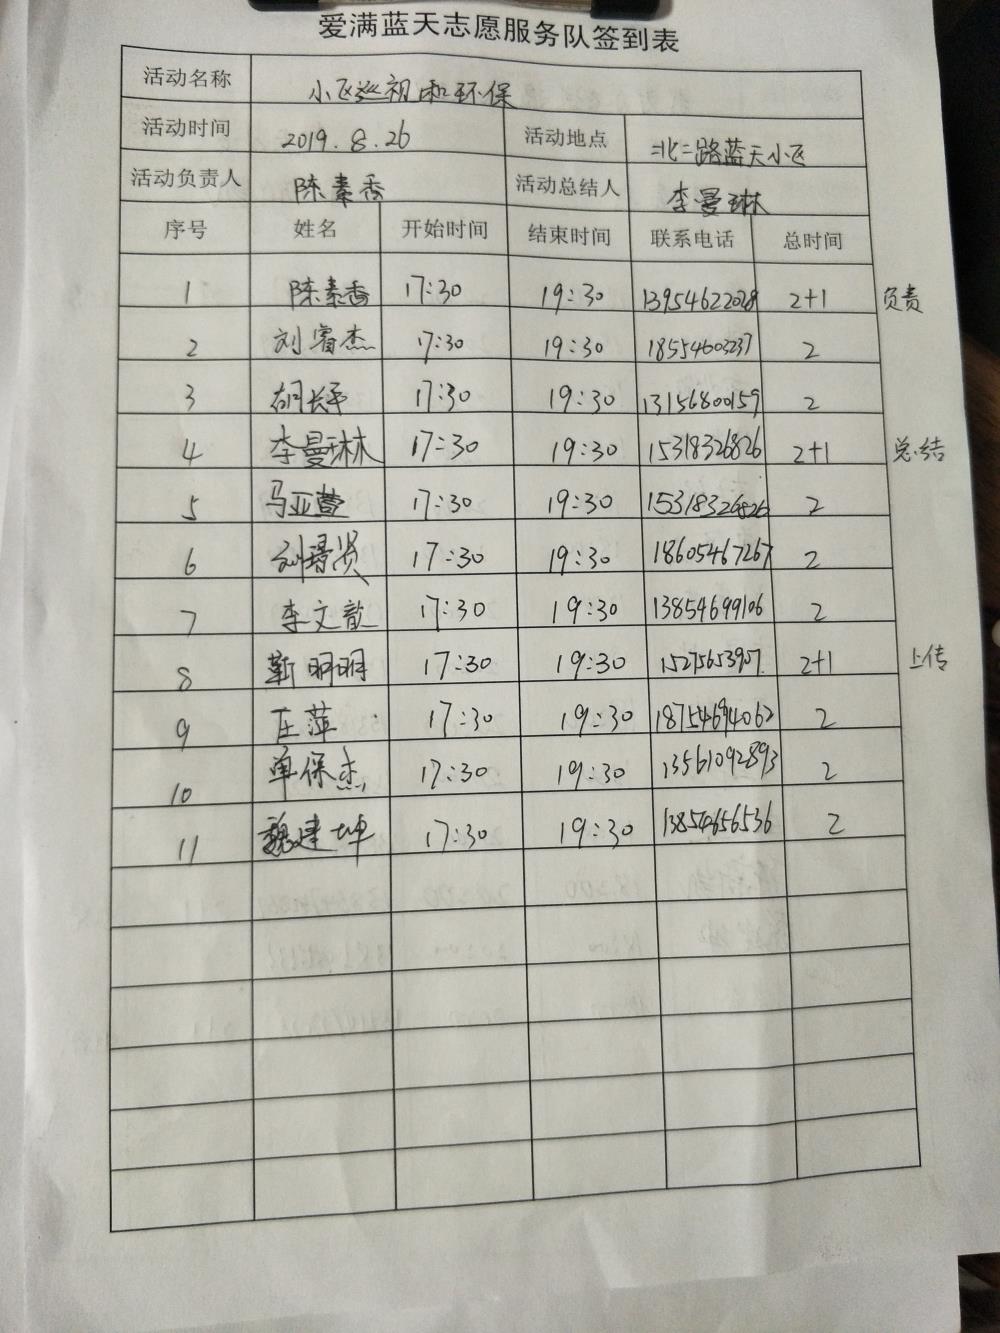 爱满蓝天志愿服务队签到表
活动名称 小区巡视和环保
活动时间 2019.8.26 活动地点 北二路蓝天小区
活动负责人 陈素香 活动总结人 李曼琳
序号 姓名 开始时间 结束时间 联系电话 总时间
1 陈素香 17:30 19:30 13954622028 2+1 负责
2 刘睿杰 17:30 19:30 18554603237 2
3 胡长平 17:30 19:30 13156800159 2
4 李曼琳 17:30 19:30 15318326826 2+1 总结
5 马亚萱 17:30 19:30 15318326826 2
6 17:30 19:30 18605467267 2
7 李文歆 17:30 19:30 13854699106 2
8 靳明明 17:30 19:30 15275653957 2+1 上传
9 庄萍 17:30 19:30 18754694062 2
10 单保杰 17:30 19:30 13561092893 2
11 魏建坤 17:30 19:30 13854656536 2